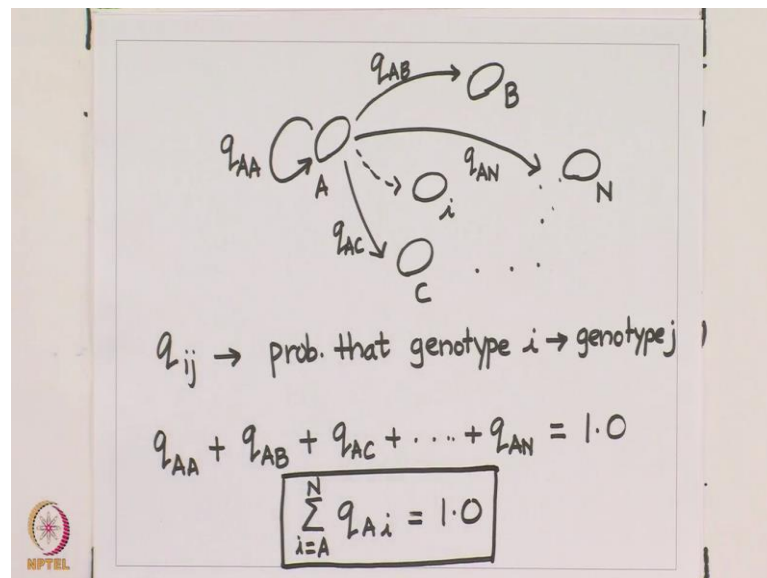 q_AB
B
q_AA
A
q_AN
N
i
q_AC
C
. . .
q_ij → prob. that genotype i → genotype j
q_AA + q_AB + q_AC + ..... + q_AN = 1.0
N
∑ q_Ai = 1.0
i=A
NPTEL